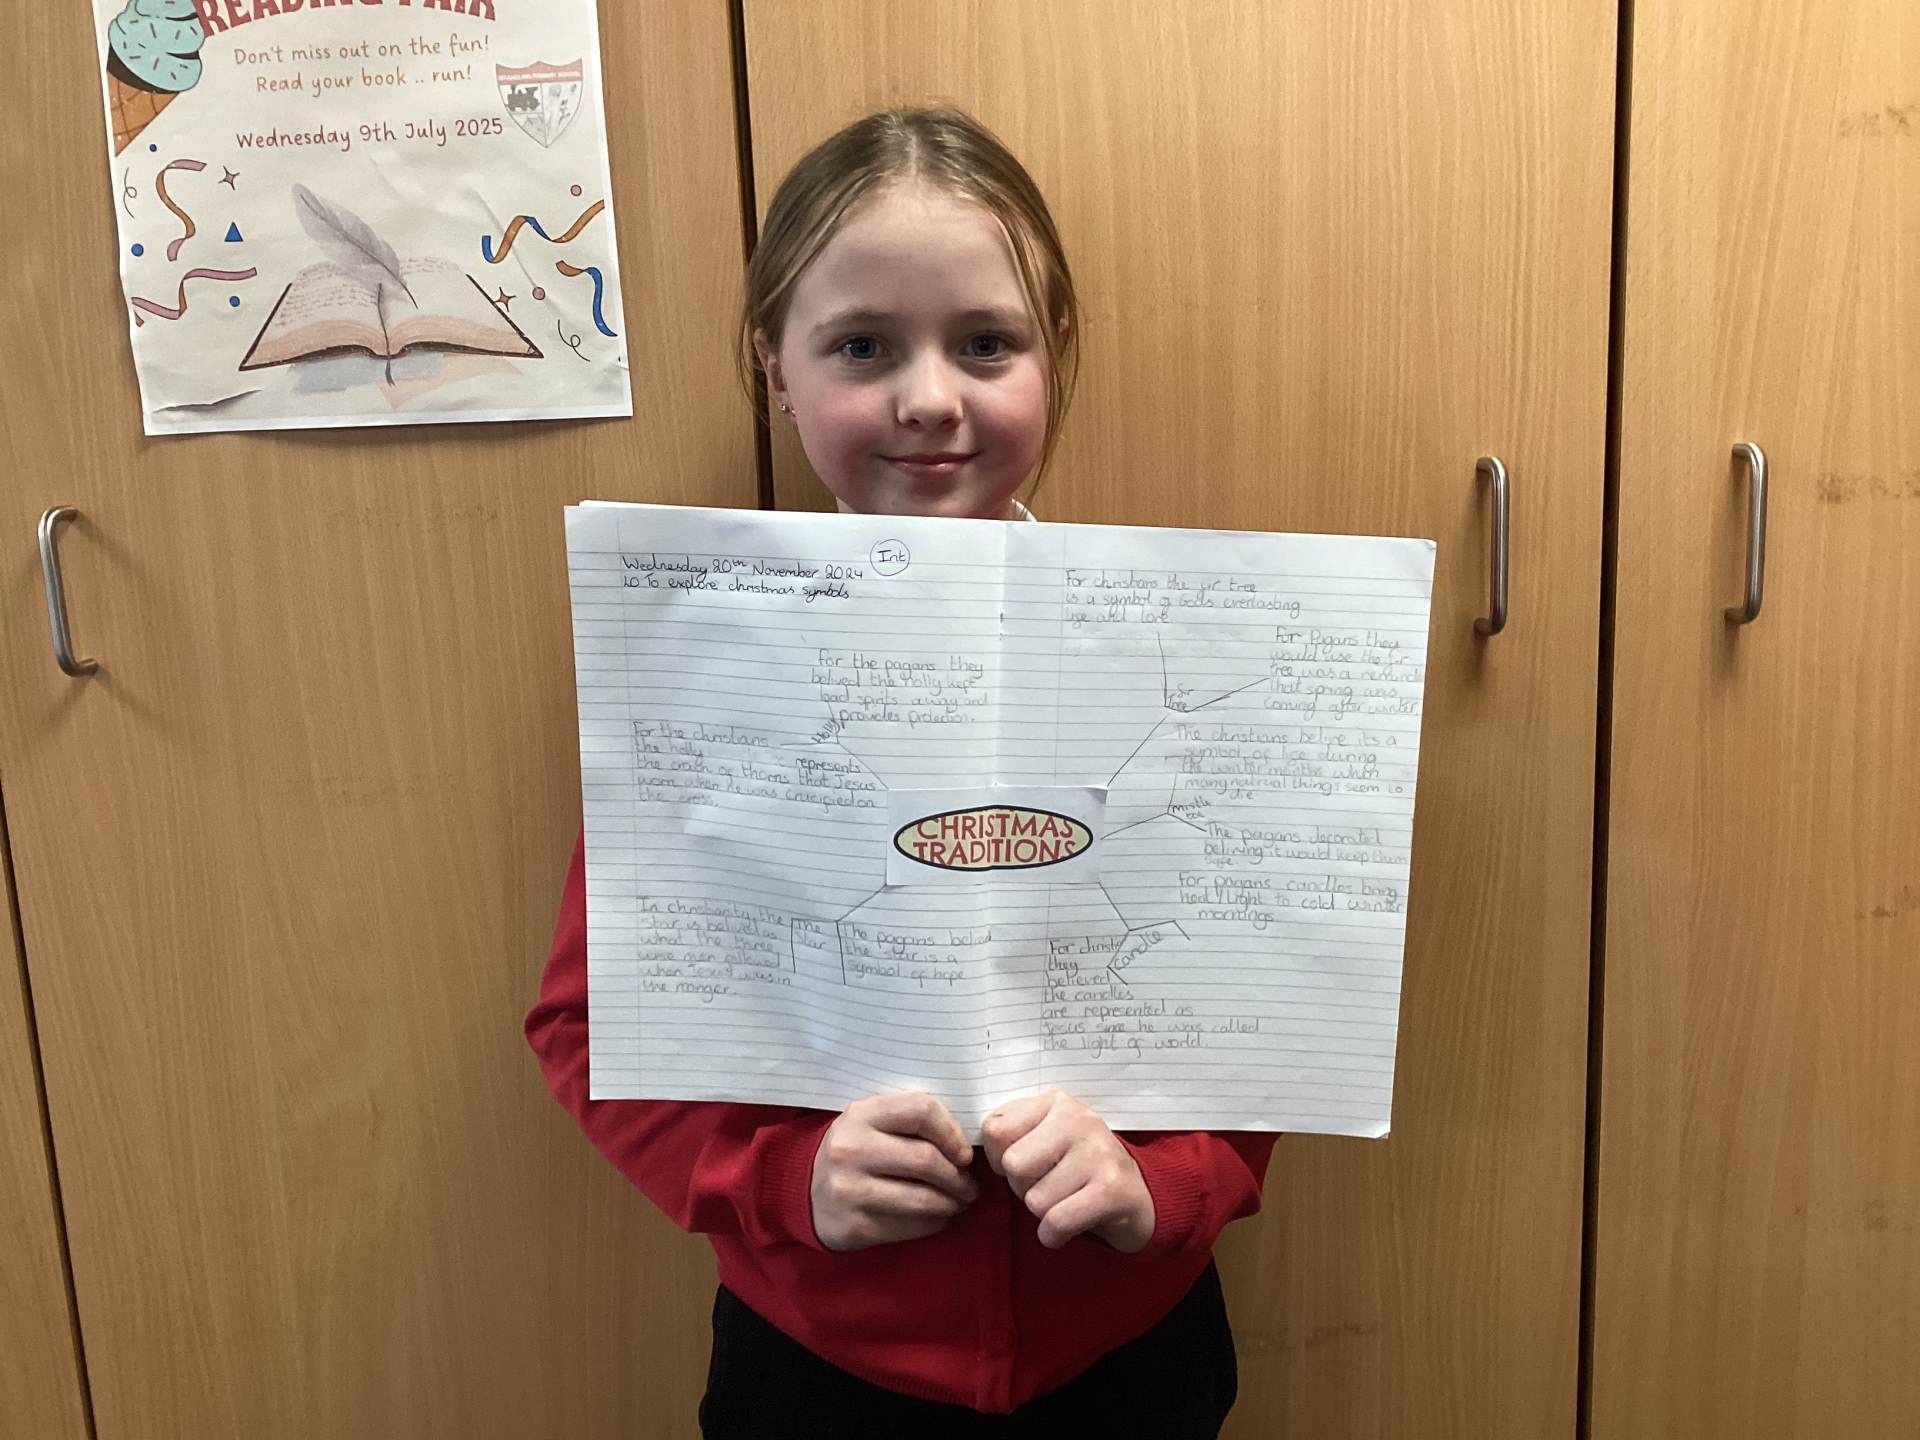 READING FAIR
Don't miss out on the fun!
Read your book .. run!
Wednesday 9th July 2025
PRIMARY SCHOOL
Wednesday 20th November 2024
Int
LO To explore christmas symbols
For the pagans they
belived the holly kept
bad spirits away and
provides protection.
Holly
For the christians
the holly
represents
the crown of thorns that Jesus
worn when he was crucified on
the cross.
In christianity, the
star is belived as
what the three
wise men followed
when Jesus was in
the manger.
The
Star
The pagans belived
the star is a
symbol of hope
CHRISTMAS
TRADITIONS
For christians the fir tree
is a symbol of Gods everlasting
life and love.
fir
Tree
For Pagans they
would use the fir
tree was a
that spring was
coming after winter.
The christians belive its a
symbol of life during
the winter months when
many natural things seem to
die
mistle
toe
The pagans decorated
beliving it would keep them
safe.
For pagans candles bring
heat/light to cold winter
mornings
candle
For
they
believed
the candles
are represented as
Jesus since he was called
the light of world.